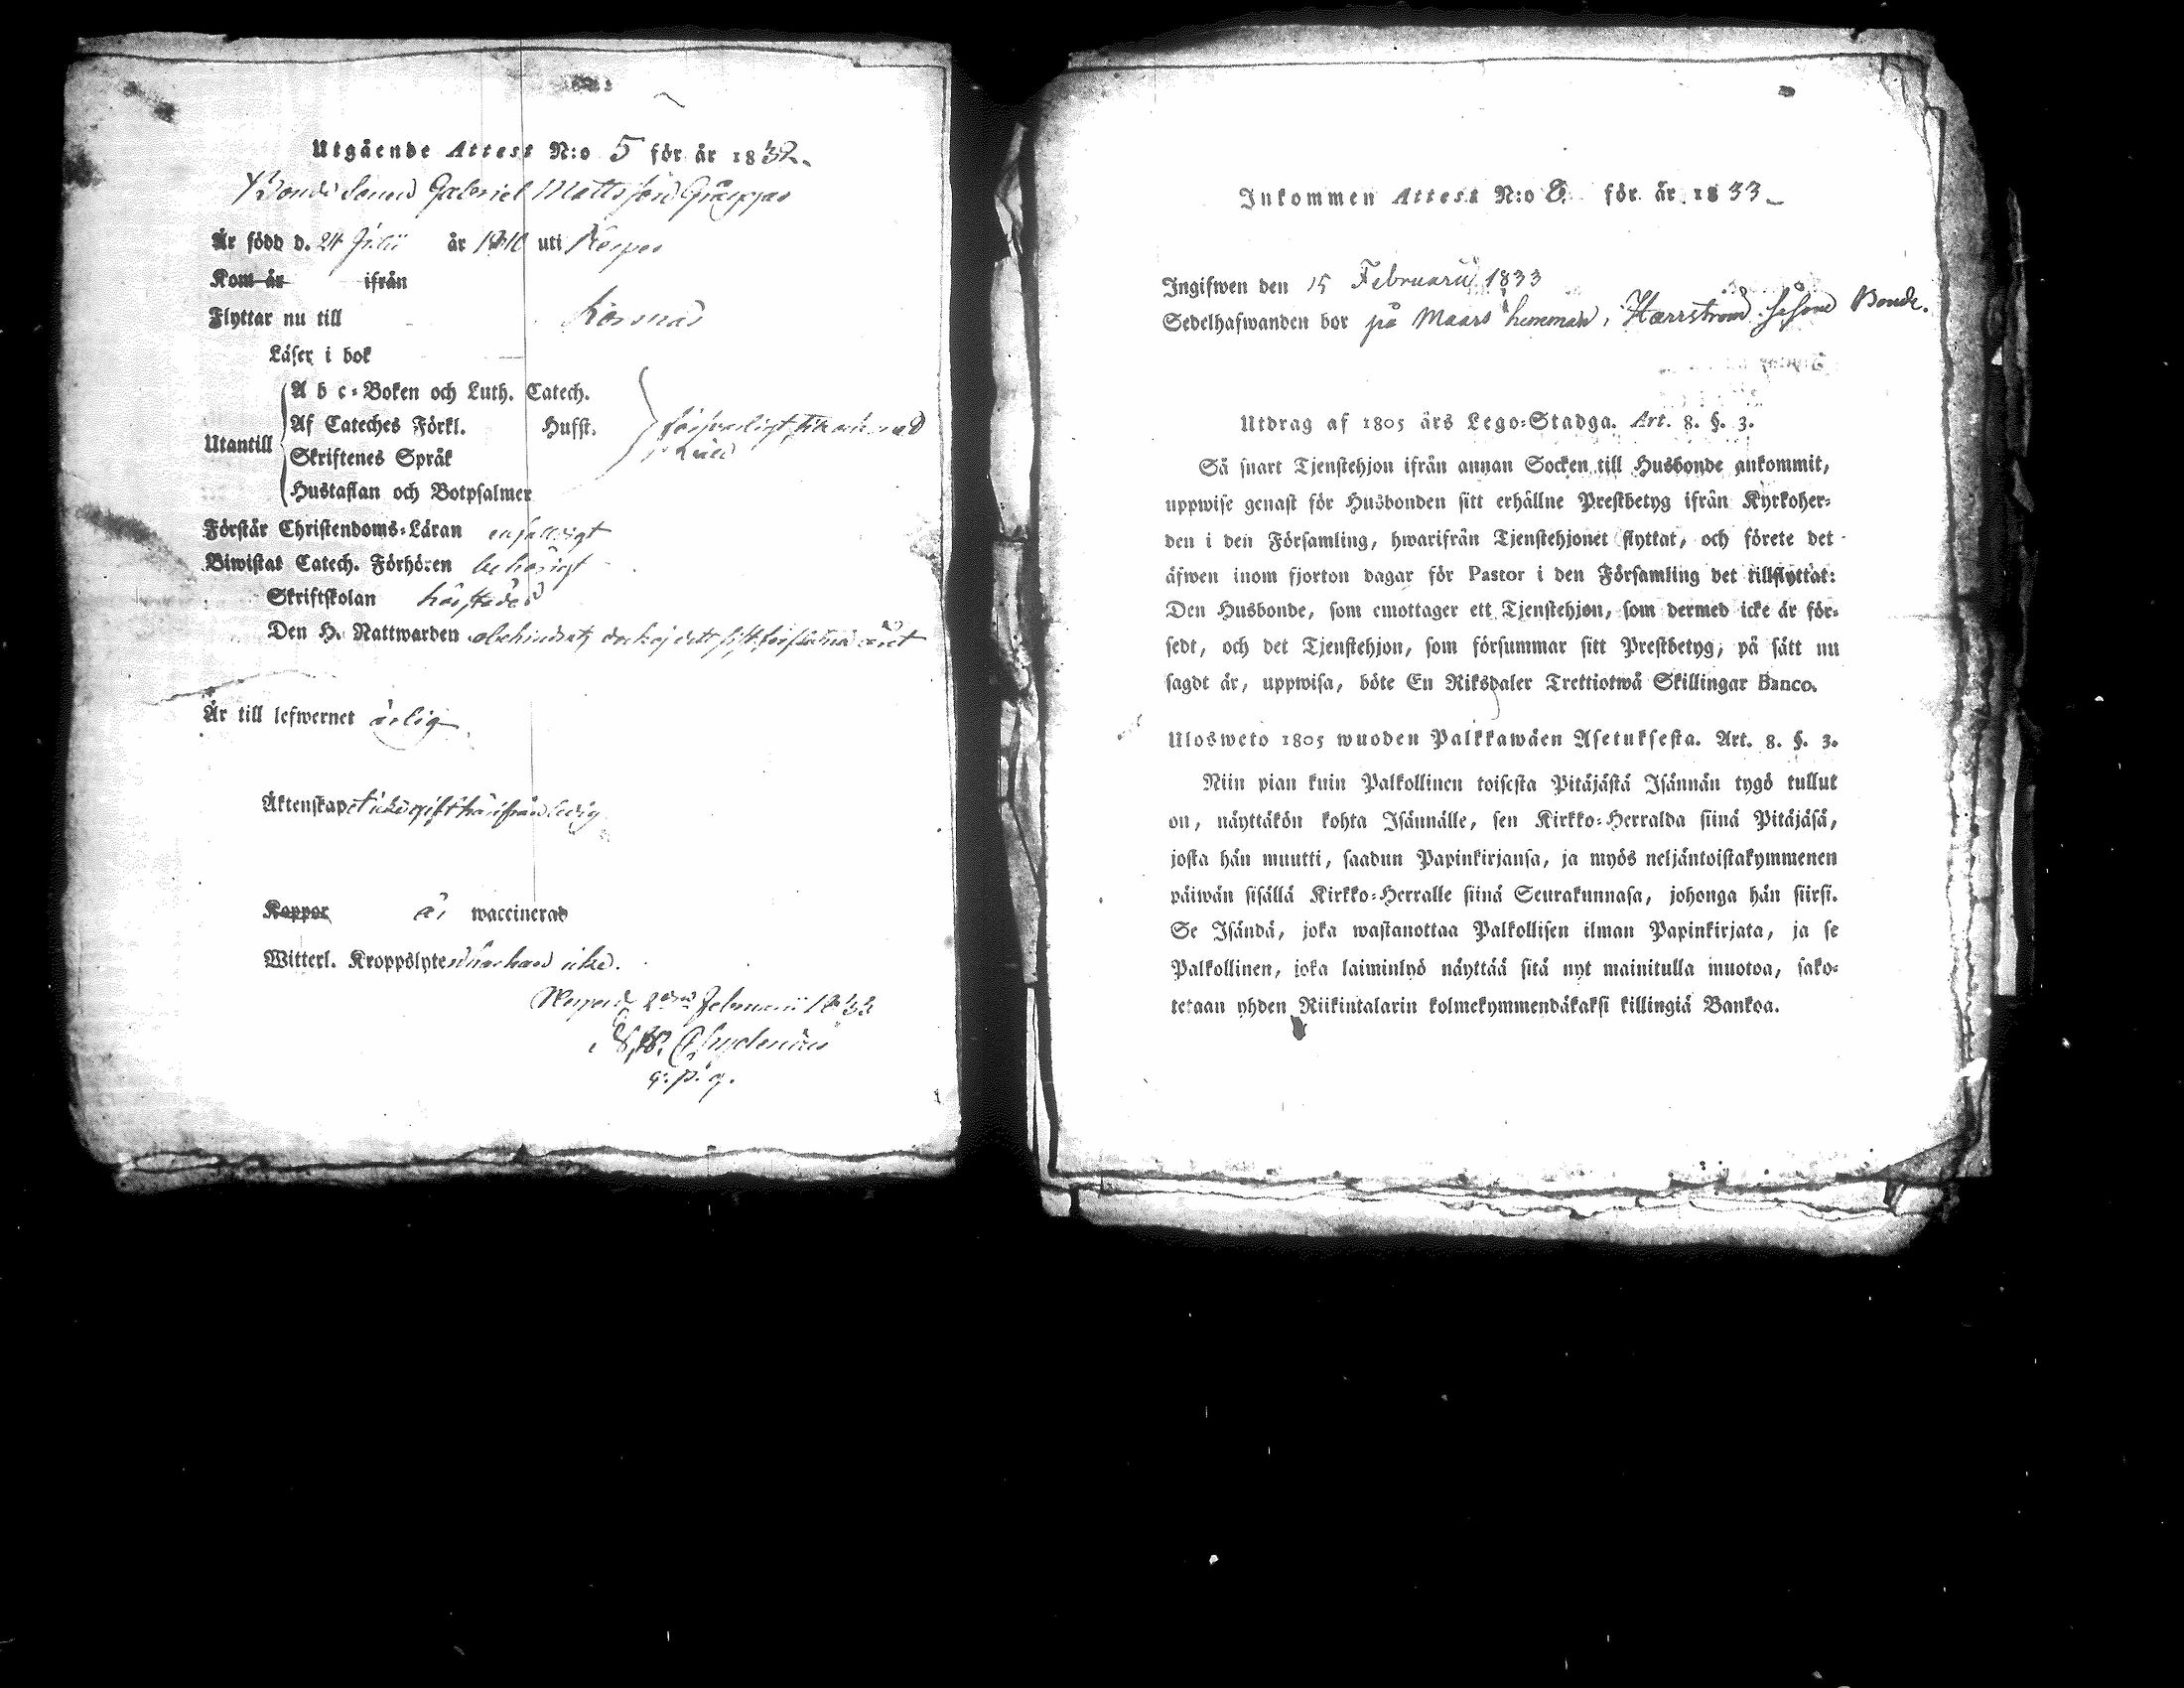 Utgående Attest N:o 5 för år 1832.
Gabriel Mattsson
Är född d. 24 Julii år 1810 uti
Kom år ifrån
Flyttar nu till Korsnäs
Läser i bok —
Utantill
A b c-Boken och Luth. Catech.
Af Cateches Förkl. Husst.
Skriftenes Språk
Hustaflan och Botpsalmer
Förstår Christendoms-Läran enfaldigt
Biwistat Catech. Förhören behörigt
Skriftskolan
Den H. Nattwarden obehindrat, året
Är till lefwernet ärlig
Äktenskap ledig
Koppor är waccinerad
Witterl. Kroppslyten har han icke.
Februarii 1833
Chydenius
Inkommen Attest N:o 8. för år 1833
Ingifwen den 15 Februarii 1833
Sedelhafwanden bor på Maars hemman, Harrström såsom Bonde.
Utdrag af 1805 års Lego-Stadga. Art. 8. §. 3.
Så snart Tjenstehjon ifrån annan Socken till Husbonde ankommit,
uppwise genast för Husbonden sitt erhållne Prestbetyg ifrån Kyrkoher-
den i den Församling, hwarifrån Tjenstehjonet flyttat, och förete det
äfwen inom fjorton dagar för Pastor i den Församling det tillflyttat:
Den Husbonde, som emottager ett Tjenstehjon, som dermed icke är för-
sedt, och det Tjenstehjon, som försummar sitt Prestbetyg, på sätt nu
sagdt är, uppwisa, böte En Riksdaler Trettiotwå Skillingar Banco.
Ulosweto 1805 wuoden Palkkawäen Asetuksesta. Art. 8. §. 3.
Niin pian kuin Palkollinen toisesta Pitäjästä Isännän tygö tullut
on, näyttäkön kohta Isännälle, sen Kirkko-Herralda siinä Pitäjäsä,
josta hän muutti, saadun Papinkirjansa, ja myös neljäntoistakymmenen
päiwän sisällä Kirkko-Herralle siinä Seurakunnasa, johonga hän siirsi.
Se Isändä, joka wastanottaa Palkollisen ilman Papinkirjata, ja se
Palkollinen, joka laiminlyö näyttää sitä nyt mainitulla muotoa, sako-
tetaan yhden Riikintalarin kolmekymmendäkaksi killingiä Bankoa.